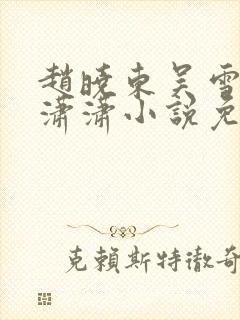 趙曉東吳雪
瀟瀟小說免
克賴斯特徹奇